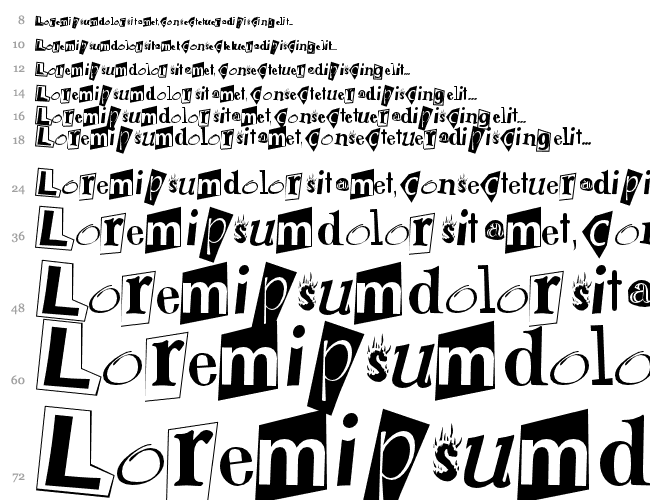 8 Lorem ipsum dolor sit amet, consectetuer adipiscing elit...
10 Lorem ipsum dolor sit amet, consectetuer adipiscing elit...
12 Lorem ipsum dolor sit amet, consectetuer adipiscing elit...
14 Lorem ipsum dolor sit amet, consectetuer adipiscing elit...
16 Lorem ipsum dolor sit amet, consectetuer adipiscing elit...
18 Lorem ipsum dolor sit amet, consectetuer adipiscing elit...
24 Lorem ipsum dolor sit amet, consectetuer adipi
36 Lorem ipsum dolor sit amet, con
48 Lorem ipsum dolor sit a
60 Lorem ipsum dolo
72 Lorem ipsum d